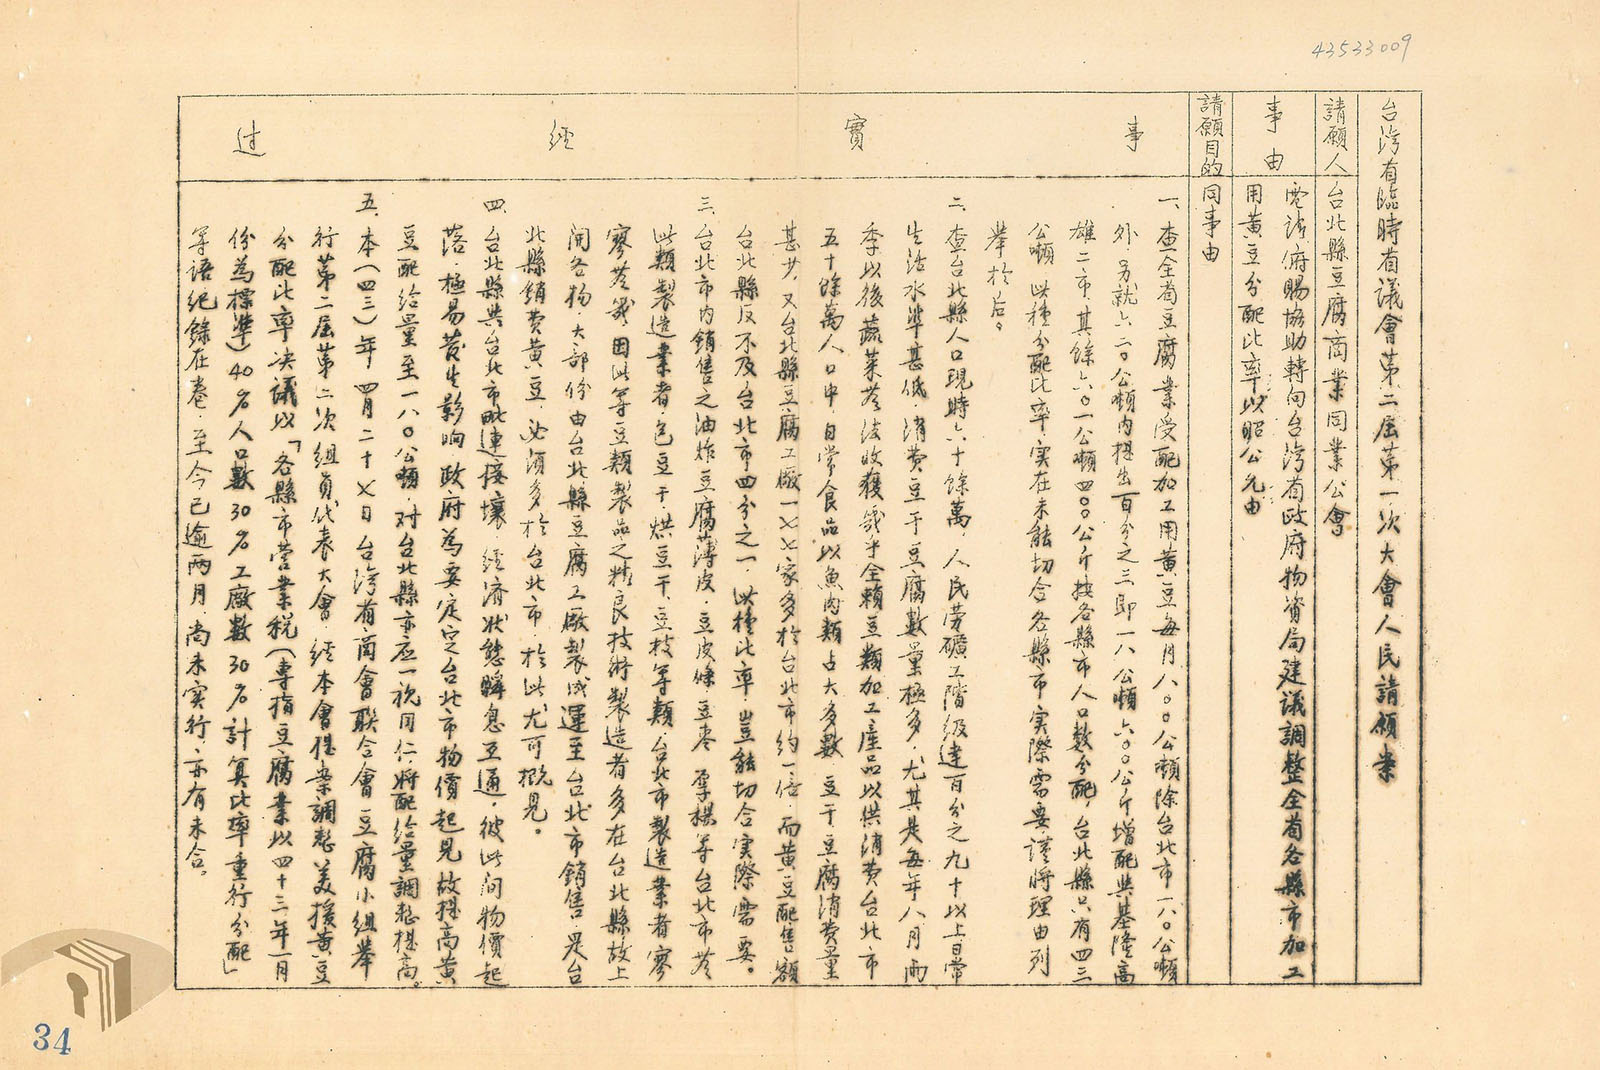 43533009
台湾省臨時省議會第二屆第一次大會人民請願案
請願人
台北縣豆腐商業同業公會
事由
電請 府賜協助轉向台湾省政府物資局建議調整全省各縣市加工
用黄豆分配比率以昭公允由
請願目的
同事由
事實經过
一、查全省豆腐業受配加工用黄豆每月八〇〇公噸除台北市一八〇公噸
外.另就六二〇公噸内提出百分之三即一八公噸六〇〇公斤增配與基隆高
雄二市.其餘六〇一公噸四〇〇公斤按各縣市人口数分配，台北縣只有四三
公噸 此種分配比率实在未能切合各縣市实際需要謹將理由列
举於后。
二、查台北縣人口現時六十餘萬，人民劳礦工階級達百分之九十以上日常
生活水準甚低，消費豆干豆腐數量極多，尤其是每年八月雨
季以後蔬菜苍淡收獲幾乎全賴豆類加工產品以供消费台北市
五十餘萬人口中，日常食品以魚肉類占大多數 豆干、豆腐消费量
甚少，又台北縣豆腐工廠一七七家多於台北市約一倍，而黄豆配售額
台北縣反不及台北市四分之一，此種比率豈能切合实際需要。
三、台北市内銷售之油炸豆腐薄皮、豆皮條、豆枣 孕糕等台北市苍
此類製造業者，包豆干、烘豆干、豆枝等類，台北市製造業者寥
寥苍幾，因此等豆類製品之精良技術製造者多在台北縣故上
開各物，大部份由台北縣豆腐工廠製成運至台北市銷售，是台
北縣銷費黄豆，必須多於台北市，於此尤可概見。
四、台北縣與台北市毗連接壤，經济狀態瞬息互通，彼此间物價起
落，極易发生影响，政府為要定定台北市物價起見故提高黄
豆配給量至一八〇公噸，对台北縣亦应一視同仁將配給量調整提高。
五、本（四三）年四月二十七日台湾省商會联合會豆腐小組举
行第二屆第二次組員代表大會 經本會提案調整美援黄豆
分配比率决議以「各縣市营業税（專指豆腐業以四十三年一月
份為標準）40%人口數30%工廠數30%計算比率重行分配」
等语纪錄在卷，至今已逾两月，尚未实行，亦有未合。
34